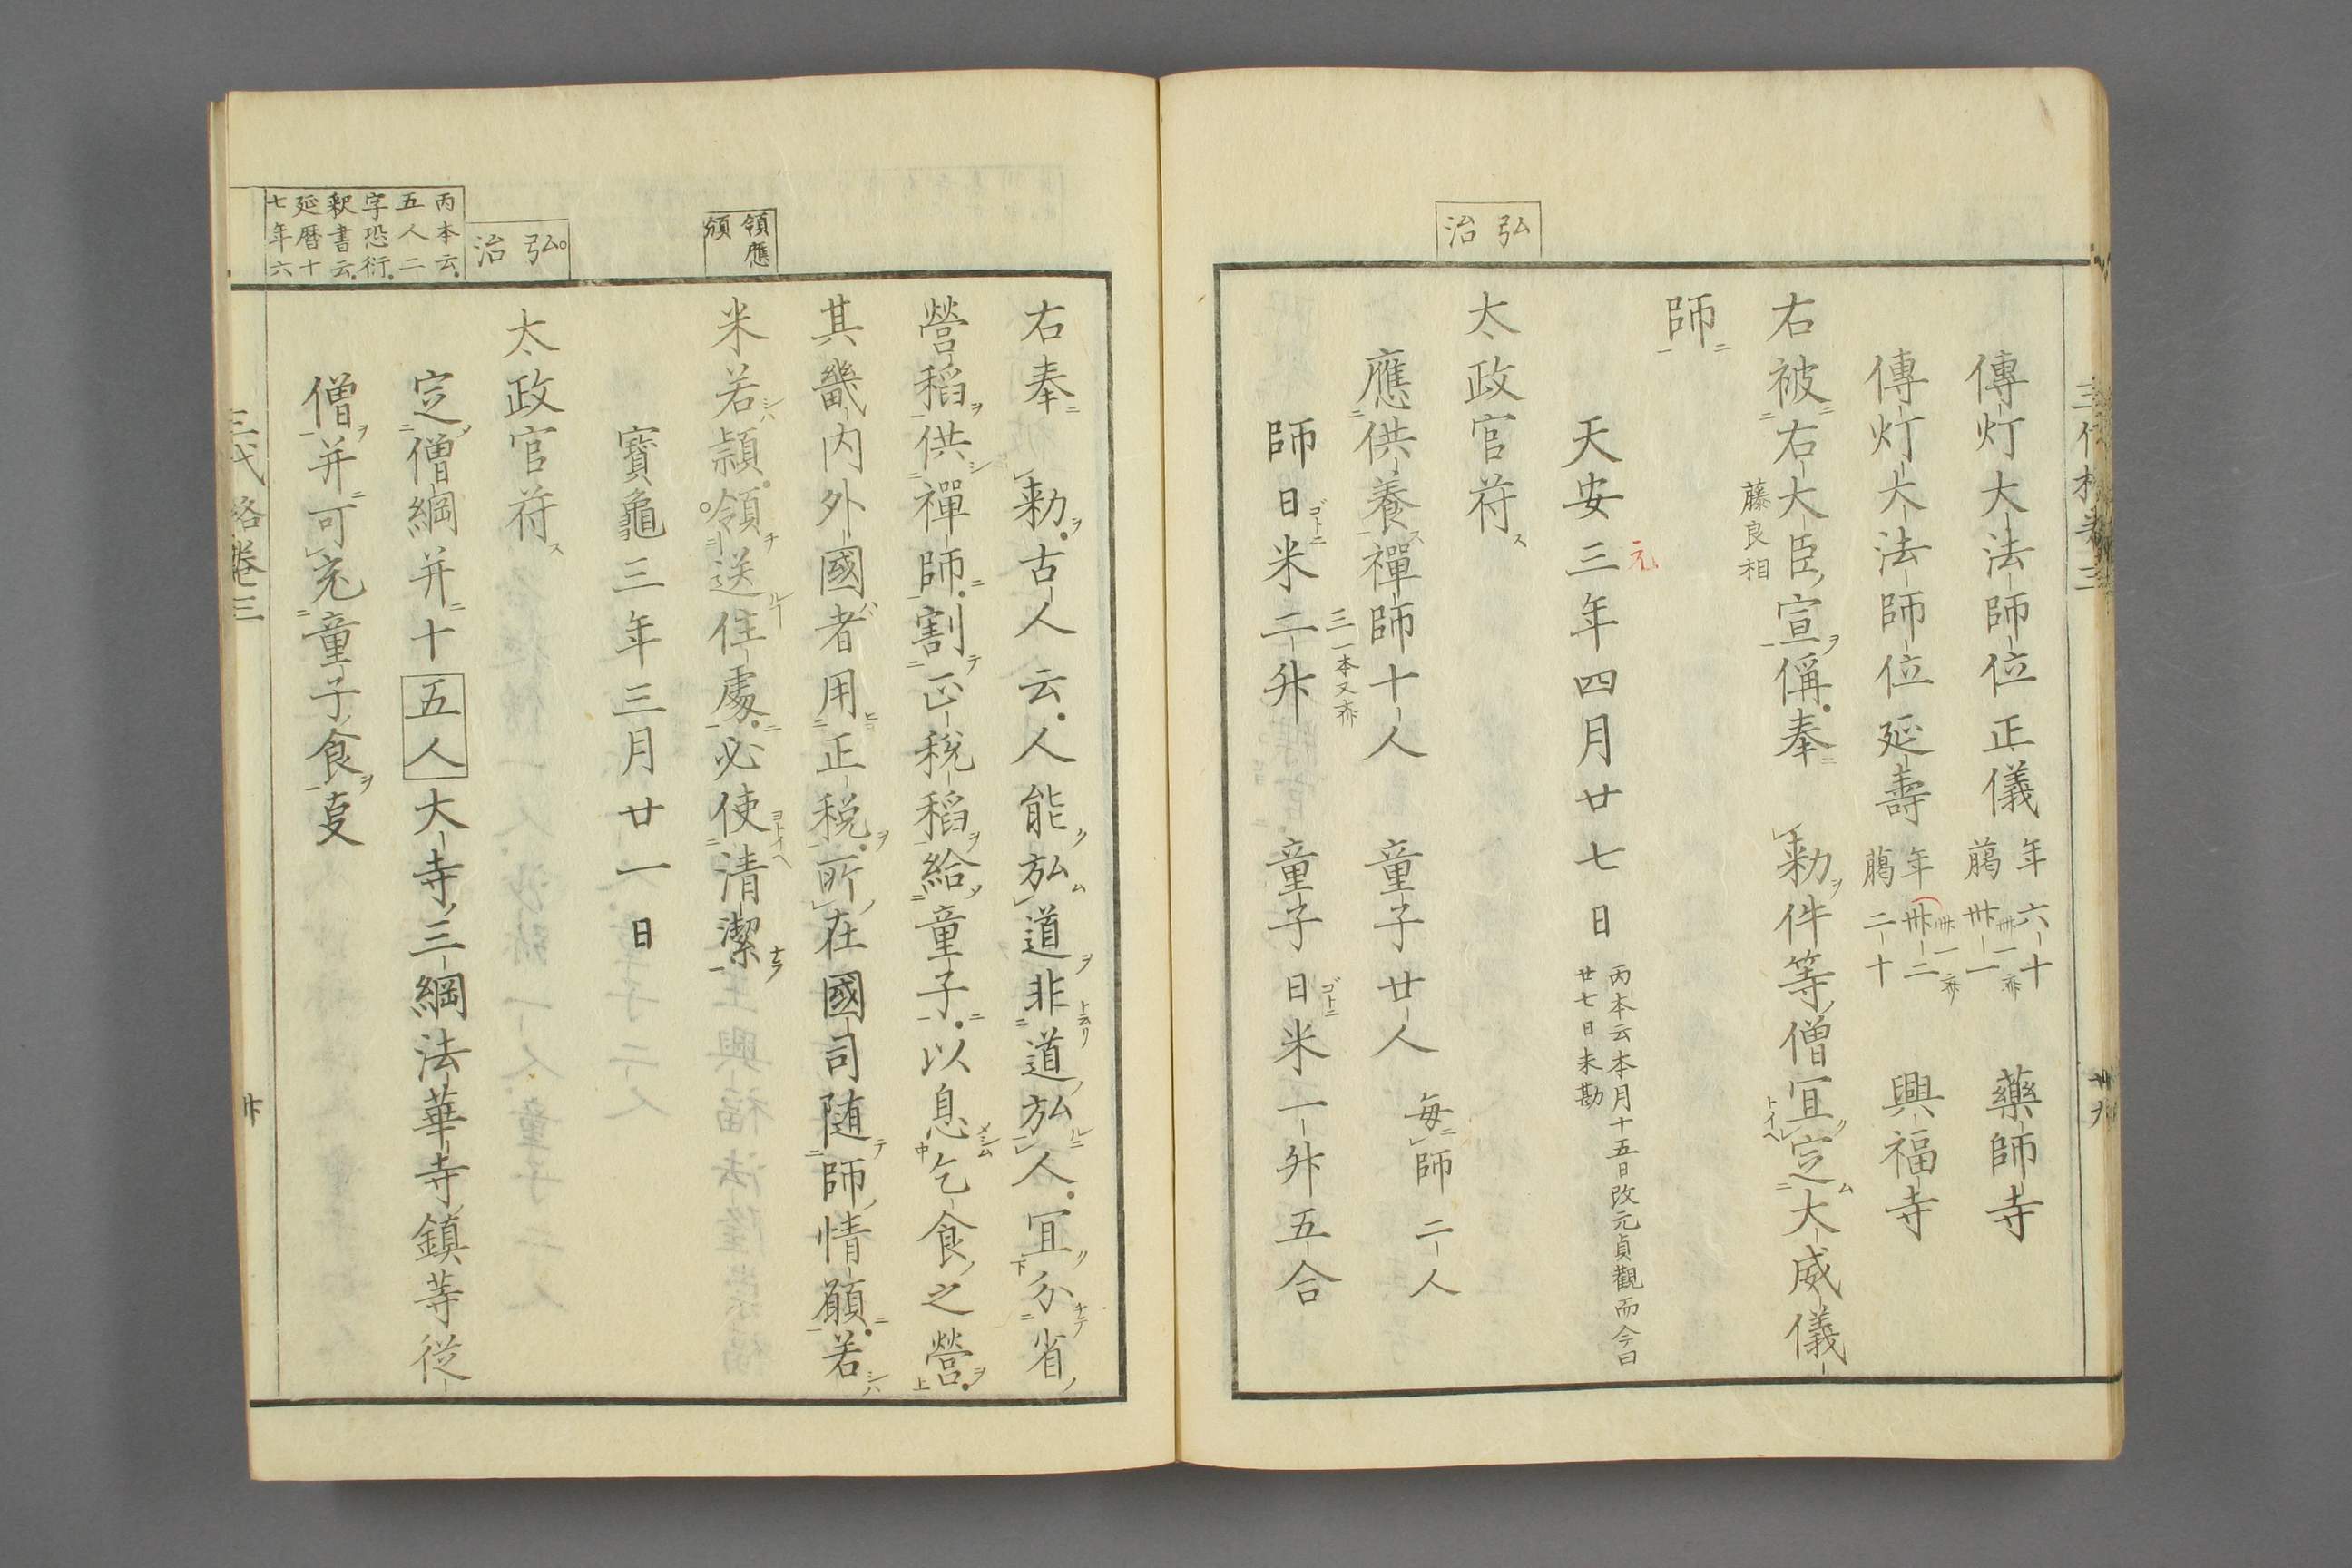 弘
治
傳灯大法師位正儀 年六十 﨟卅一 卌一亦 藥師寺
傳灯大法師位延壽 年卅二 﨟二十 卌一亦 興福寺
右被右大臣宣偁奉 勅件等僧冝定大威儀
藤良相
師
天安三年四月廿七日 丙本云本月十五日改元貞觀而今曰 廿七日未勘
元
太政官符
應供養禪師十人 童子廿人 每師二人
師日米二升 童子日米一升五合
三一本又亦
領應
頒
弘
治
丙本云
五人二
字恐衍
釈書云
延暦十
七年六
右奉 勅古人云人能弘道非道弘人冝分省
營稻供禪師割正稅稻給童子以息乞食之營
其畿内外國者用正税所在國司随師情願若
米若頴領送住處必使清潔
寳龜三年三月廿一日
太政官符
定僧綱并十五人大寺三綱法華寺鎮等従
僧并可充童子食㕝
三代格卷三
卅